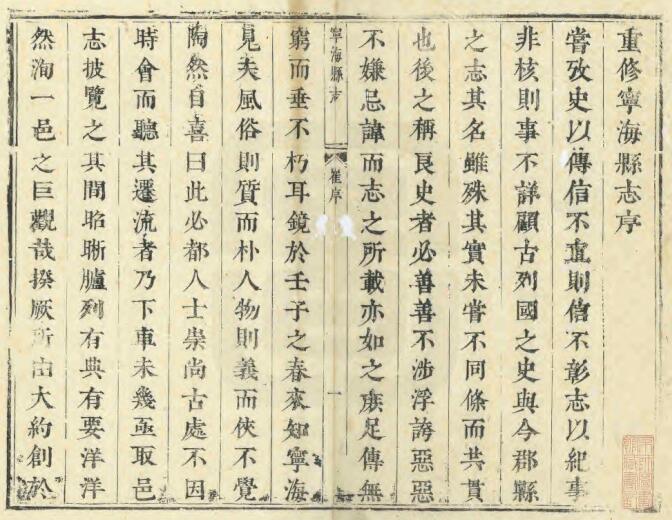 重修寧海縣志序
嘗攷史以傳信不直則信不彰志以紀事
非核則事不詳顧古列國之史與今郡縣
之志其名雖殊其實未嘗不同條而共貫
也後之稱良史者必善善不涉浮誇惡惡
不嫌忌諱而志之所載亦如之庶足傳無
寧海縣志 崔序 一
窮而垂不朽耳鏡於壬子之春來知寧海
見夫風俗則質而朴人物則義而俠不覺
陶然自喜曰此必都人士崇尚古處不因
時會而聽其遷流者乃下車未幾亟取邑
志披覽之其間昭晰臚列有典有要洋洋
然洵一邑之巨觀哉揆厥所由大約創於